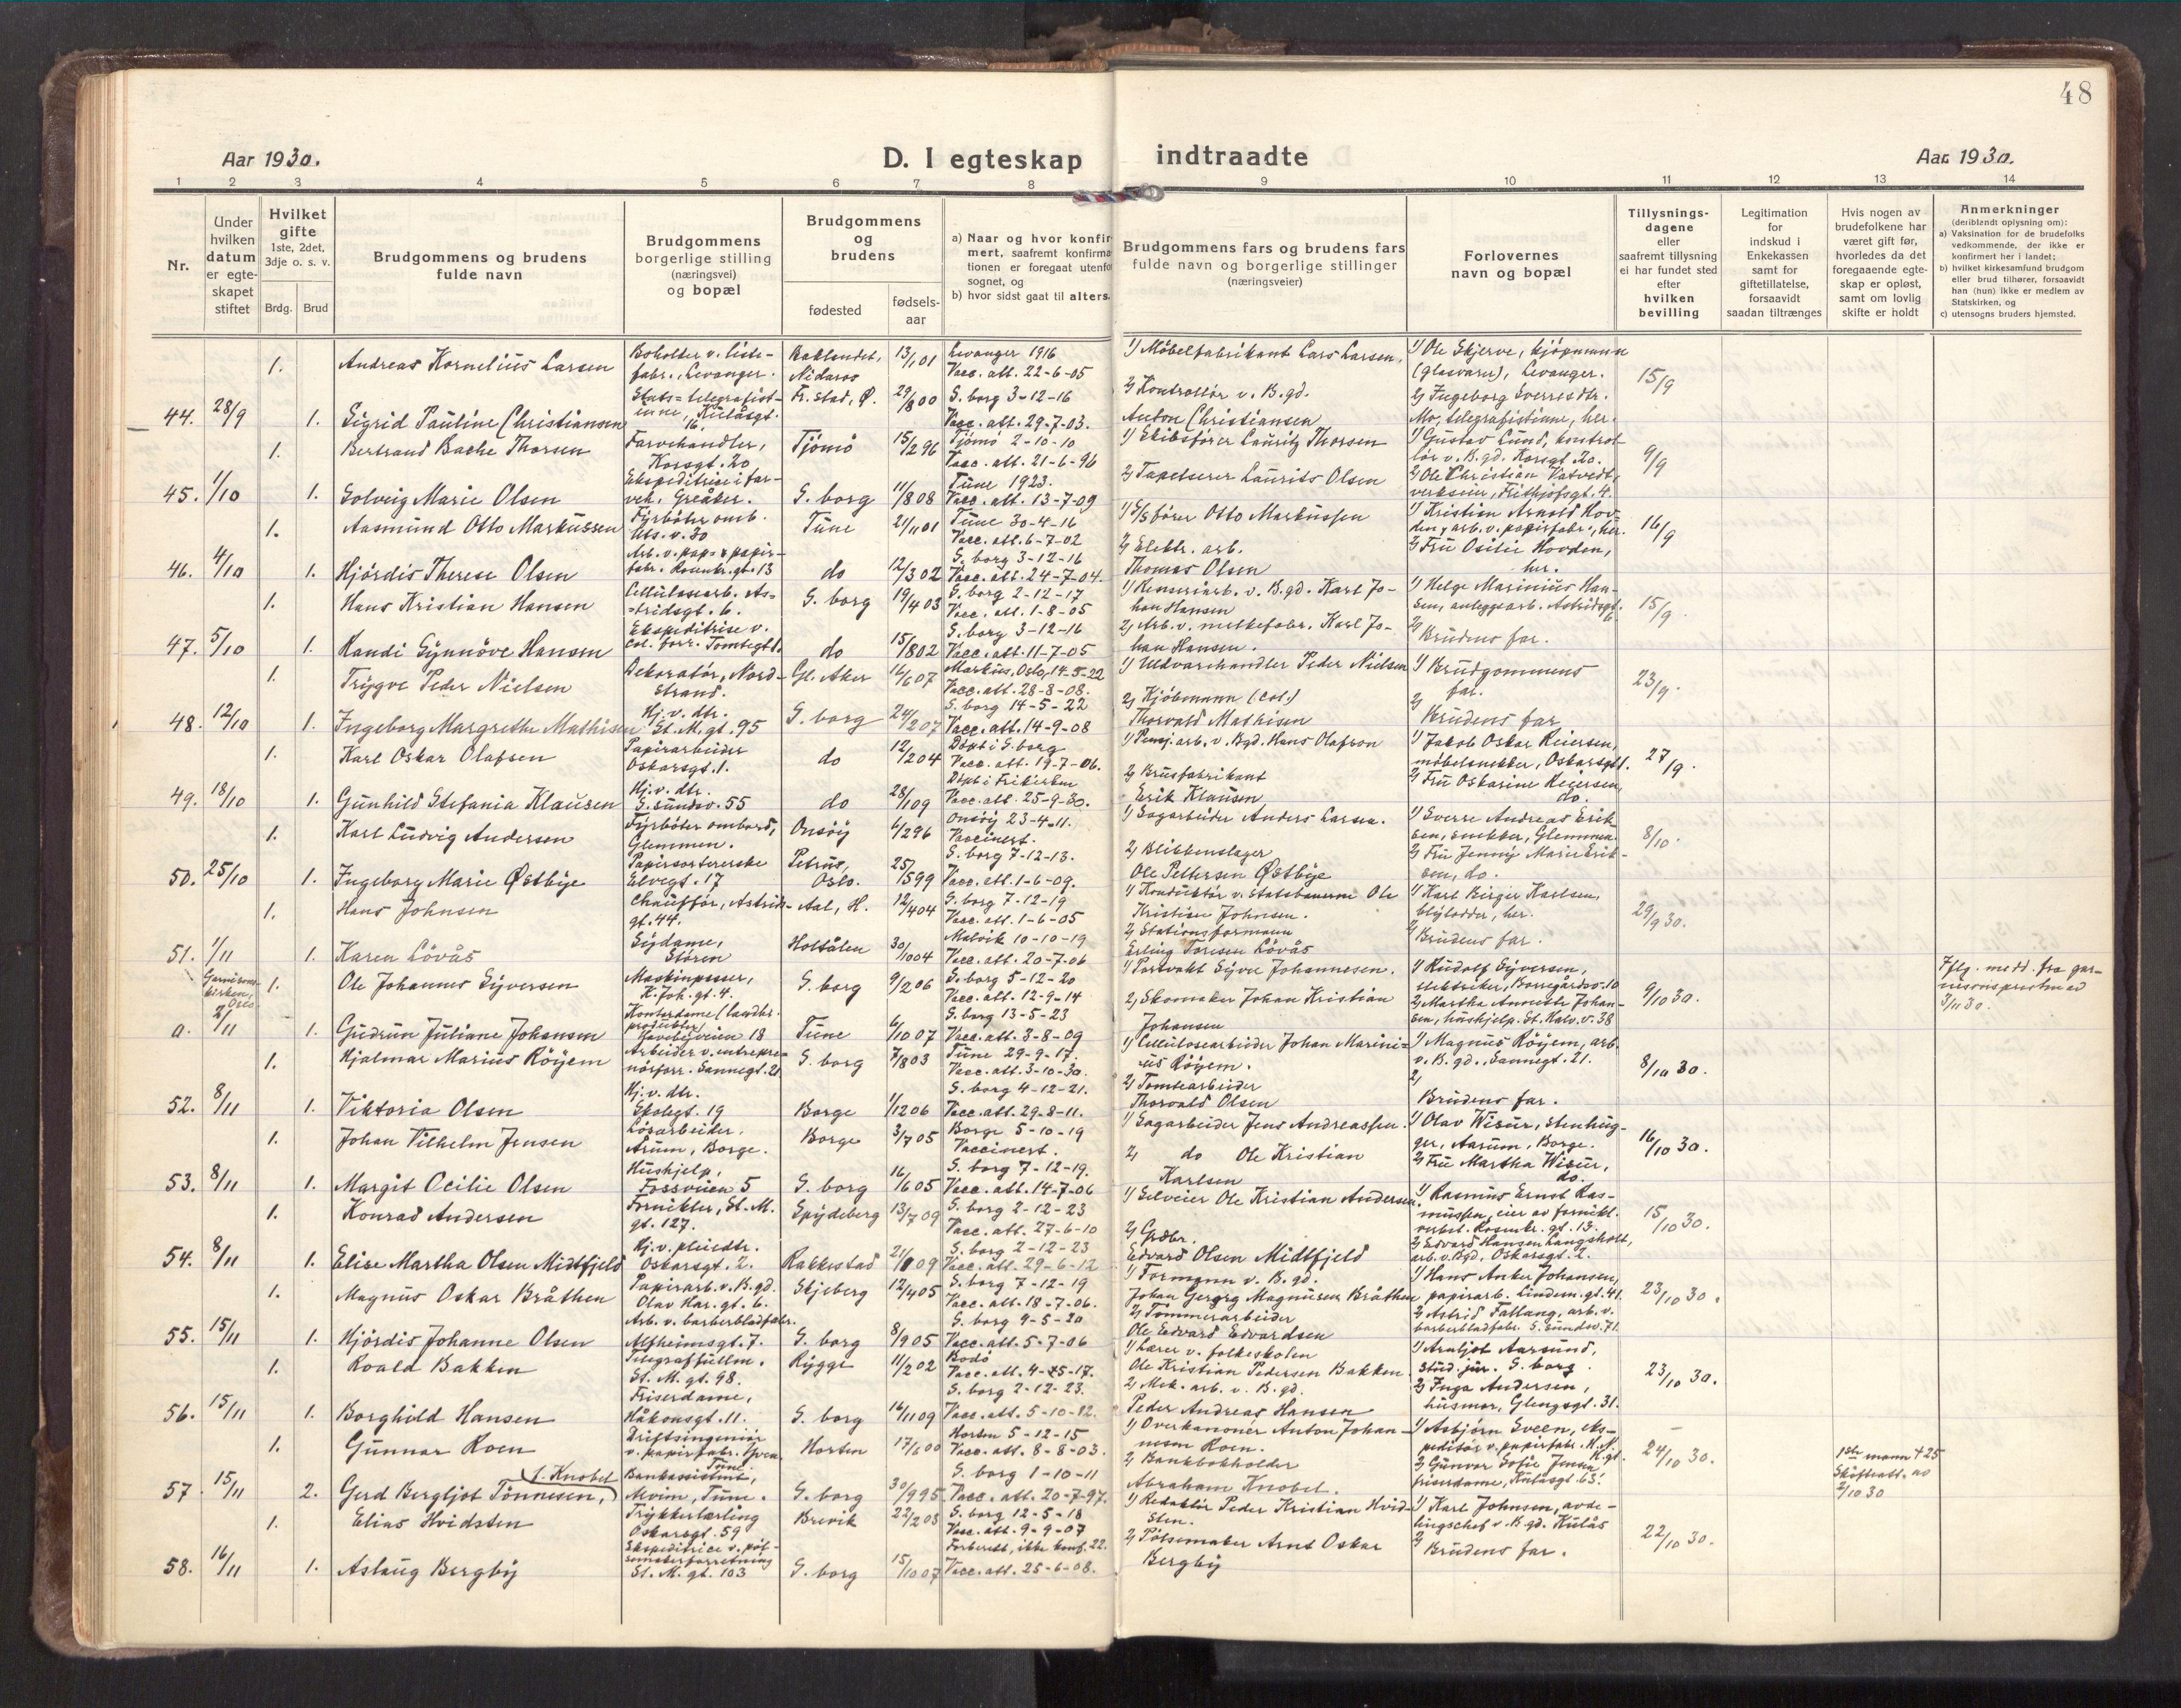 48
Aar 1930.
D. I egteskap indtraadte
Aar 1930.
1 2 3 4 5 6 7 8 9 10 11 12 13 14
Nr.
Under hvilken datum er egteskapet stiftet
Hvilket gifte 1ste, 2det, 3dje o. s. v.
Brdg. Brud
Brudgommens og brudens fulde navn
Brudgommens borgerlige stilling (næringsvei) og bopæl
Brudgommens og brudens
fødested
fødselsaar
a) Naar og hvor konfirmert, saafremt konfirmationen er foregaat utenfor sognet, og
b) hvor sidst gaat til alters.
Brudgommens fars og brudens fars fulde navn og borgerlige stillinger (næringsveier)
Forlovernes navn og bopæl
Tillysningsdagene eller saafremt tillysning ei har fundet sted efter hvilken bevilling
Legitimation for indskud i Enkekassen samt for giftetillatelse, forsaavidt saadan tiltrænges
Hvis nogen av brudefolkene har været gift før, hvorledes da det foregaaende egteskap er opløst, samt om lovlig skifte er holdt
Anmerkninger
(deriblandt oplysning om):
a) Vaksination for de brudefolks vedkommende, der ikke er konfirmert her i landet;
b) hvilket kirkesamfund brudgom eller brud tilhører, forsaavidt han (hun) ikke er medlem av Statskirken, og
c) utensogns bruders hjemsted.
1. Andreas Kornelius Larsen Boholder v. liste-fabr., Levanger. Baklandet, Nidaros 13/1 01 Levanger 1916 Vacc. att. 22-6-05 1) Möbelfabrikant Lars Larsen. 1) Ole Skjerve, kjöpmann (glasvarer), Levanger. 15/9
44. 28/9 1. Sigrid Pauline Christiansen Stats-telegrafist-inne, Kulåsgt. 16. Fr.stad, Ø. 29/8 00 S. borg 3-12-16 Vacc. att. 29-7-03. 2) Kontrollör v. B.gd. Anton Christiansen 2) Ingeborg Sverresdtr. Mo, telegrafistinne, her.
1. Bertrand Bache Thorsen Farvehandler, Korsgt. 20 Tjömö 15/2 96 Tjömö 2-10-10 Vacc. att. 21-6-96 1) Skibsförer Lauritz Thorsen 1) Gustav Lund, kontrol-lör v. B.gd. Korsgt. 20. 9/9
45. 1/10 1. Solveig Marie Olsen Ekspeditrise i far-veh. Greåker. S. borg 11/8 08 Tune 1923. Vacc. att. 13-7-09 2) Tapetserer Laurits Olsen 2) Ole Christian Vatvedt, verkseier, Frithjofsgt. 4.
1. Aasmund Otto Markussen Fyrböter omb. Tune 21/11 01 Tune 30-4-16 Vacc. att. 6-7-02 1) S/S förer Otto Markussen 1) Kristian Arnold Hov-den, arb. v. papirfabr., her. 16/9
46. 4/10 1. Hjördis Therese Olsen Arb. v. pap= & papir-fabr. Rosenkr. gt. 13 do 12/3 02 S. borg 3-12-16 Vacc. att. 24-7-04. 2) Elektr. arb. Thomas Olsen 2) Fru Osilie Hovden, her.
1. Hans Kristian Hansen Cellulosearb. As=tridsgt. 6. S. borg 19/4 03 S. borg 2-12-17 Vacc. att. 1-8-05 1) Renseriarb. v. B.gd. Karl Jo-han Hansen 1) Helge Marinius Han-sen, anleggsarb. Astridsgt. 6 15/9.
47. 5/10 1. Randi Synnöve Hansen Ekspeditrise v. col. forr. Tomtegt. 1. do 15/8 02 S. borg 3-12-16 Vacc. att. 11-7-05 2) Arb. v. melkefabr. Karl Jo-han Hansen. 2) Brudens far.
1. Trygve Peder Nielsen Dekoratör, Nord-strand. Gl. Aker 16/6 07 Markus, Oslo, 14-5-22 Vacc. att. 28-8-08. 1) Uldvarehandler Peder Nielsen 1) Brudgommens far. 23/9.
48. 12/10 1. Ingeborg Margrethe Mathisen Hj. v. dtr. St. M. gt. 95 S. borg 24/2 07 S. borg 14-5-22 Vacc. att. 14-9-08 2) Kjöbmann (col.) Thorvald Mathisen 2) Brudens far
1. Karl Oskar Olafsen Papirarbeider Oskarsgt. 1. do 12/2 04 Döpt i S. borg Vacc. att. 19-7-06. 1) Pensj. arb. v. Bgd. Hans Olafson 1) Jakob Oskar Reiersen, möbelsnekker, Oskarsgt 1. 27/9.
49. 18/10 1. Gunhild Stefania Klausen Hj. v. dtr. S. sundsv. 55 do 28/1 09 Döpt i Frikirken Vacc. att. 25-9-30. 2) Brusfabrikant Erik Klausen 2) Fru Oskarine Reiersen, do.
1. Karl Ludvig Andersen Fyrböter ombord, Glemmen. Onsöy 4/2 96 Onsöy 23-4-11. Vaccinert. 1) Sagarbeider Anders Larsen. 1) Sverre Andreas Erik-sen, snekker, Glemmen. 8/10.
50. 25/10 1. Ingeborg Marie Østbye Papirsortererske Elvegt. 17 Petrus, Oslo. 25/5 99 S. borg 7-12-13. Vacc. att. 1-6-09. 2) Blikkenslager Ole Pettersen Østbye 2) Fru Jenny Marie Erik-sen, do.
1. Hans Johnsen Chaufför, Astrids-gt. 44. Aal, H. 12/4 04 S. borg 7-12-19 Vacc. att. 1-6-05 1) Konduktör v. statsbanerne Ole Kristian Johnsen. 1) Karl Birger Karlsen, blylodder, her. 29/9 30.
51. 1/11 1. Karen Lövås Sydame, Stören Holtålen 30/10 04 Malvik 10-10-19 Vacc. att. 20-7-06 2) Stationsformann Erling Toresen Lövås 2) Brudens far.
Garnisons-kirken, Oslo 1. Ole Johannes Syversen Maskinpasser, K. Joh. gt. 4. S. borg 9/2 06 S. borg 5-12-20 Vacc. att. 12-9-14 1) Portvakt Syver Johannesen. 1) Rudolf Syversen, elektriker, Borregårdsv. 10 9/10 30. Iflg. medd. fra gar-nisonspresten av 3/11 30.
a. 2/11 1. Gudrun Juliane Johansen Kontordame (landbr. produkter) Haveibyveien 18 Tune 6/10 07 S. borg 13-5-23 Vacc. att. 3-8-09 2) Skomaker Johan Kristian Johansen 2) Martha Annette Johan-sen, hushjelp. St. Halv. v. 38
1. Hjalmar Marius Röyem Arbeider v. entrepre-nörforr. Sannegt. 21 S. borg 7/8 03 Tune 29-9-17. Vacc. att. 3-10-30. 1) Cellulosearbeider Johan Marini=us Röyem. 1) Magnus Röyem, arb. v. B. gd., Sannegt. 21. 8/10 30.
52. 8/11 1. Viktoria Olsen Hj. v. dtr. Skolegt. 19 Borge 1/12 06 S. borg 4-12-21. Vacc. att. 29-8-11. 2) Tomtearbeider Thorvald Olsen 2) Brudens far.
1. Johan Vilhelm Jensen Lösarbeider. Årum, Borge. Borge 3/7 05 Borge 5-10-19 Vaccinert. 1) Sagarbeider Jens Andreassen. 1) Olav Wisur, stenhug-ger, Aarum, Borge. 16/10 30.
53. 8/11 1. Margit Ocilie Olsen Hushjelp, Fossveien 5 S. borg 16/6 05 S. borg 7-12-19. Vacc. att. 14-7-06 2) do Ole Kristian Karlsen 2) Fru Martha Wisur, do.
1. Konrad Andersen Fornikler, St. M. gt. 127. Spydeberg 13/7 09 S. borg 2-12-23 Vacc. att. 27-6-10 1) Selveier Ole Kristian Andersen. 1) Rasmus Ernst Ras-mussen, eier av fornikl. verkst. Rosenkr. gt. 13. 15/10 30.
54. 8/11 1. Elise Martha Olsen Midtfjeld Hj. v. pleiedtr. Oskarsgt. 2. Rakkestad 21/1 09 S. borg 2-12-23 Vacc. att. 29-6-12 2) Grdbr. Edvard Olsen Midtfjeld 2) Edvard Hansen Langsholt, arb. v. Bgd. Oskarsgt. 2.
1. Magnus Oskar Bråthen Papirarb. v. B. gd. Olav Har. gt. 6. Skjeberg 12/4 05 S. borg 7-12-19 Vacc. att. 18-7-06. 1) Formann v. B. gd. Johan Georg Magnusen Bråthen 1) Hans Anker Johansen, papirarb. Lindem. gt. 41. 23/10 30.
55. 15/11 1. Hjördis Johanne Olsen Arb. v. barberbladfabr. Alfheimsgt. 7. S. borg 8/9 05 S. borg 9-5-20 Vacc. att. 5-7-06 2) Tömmerarbeider Ole Edvard Edvardsen 2) Astrid Tallang, arb. v. barberbladfabr. S. sundsv. 71.
1. Roald Bakken Telegraffullm. St. M. gt. 98. Rygge 11/2 02 Bodö Vacc. att. 4-5-17. 1) Lærer v. folkeskolen Ole Kristian Pedersen Bakken 1) Arnljot Aarsund, stud. jur. S. borg. 23/10 30.
56. 15/11 1. Borghild Hansen Friserdame, Håkonsgt. 11. S. borg 16/11 09 S. borg 2-12-23. Vacc. att. 5-10-12. 2) Mek. arb. v. B. gd. Peder Andreas Hansen 2) Inga Andersen, husmor, Glengsgt. 31.
1. Gunnar Roen Driftsingeniör v. papirfabr. Yven, Tune. Horten 17/6 00 Horten 5-12-15 Vacc. att. 8-8-03. 1) Overkanonér Anton Johan-nesen Roen. 1) Asbjörn Sveen, eks-peditör v. papirfabr. K. N. gt. 24/10 30. 1ste mann † 25 Skifteatt. av 2/10 30
57. 15/11 2. Gerd Bergljot Tönnesen, f. Knobel Bankassistent, Alvim, Tune. S. borg 30/9 95 S. borg 1-10-11 Vacc. att. 20-7-97. 2) Bankbokholder Abraham Knobel. 2) Gunvor Sofie Jensen friserdame, Kulåsgt. 63.
1. Elias Hvidsten Trykkerlærling Oskarsgt. 59 Brevik 22/2 03 S. borg 12-5-18 Vacc. att. 9-9-07 1) Redaktör Peder Kristian Hvid-sten. 1) Karl Johnsen, avde-lingschef v. B. gd. Kulås 22/10 30.
58. 16/11 1. Aslaug Bergby Ekspeditrice v. pöl-semakerforretning St. M. gt. 103 S. borg 15/10 07 Forberedt, ikke konf. 22. Vacc. att. 25-6-08. 2) Pölsemaker Arnt Oskar Bergby 2) Brudens far.